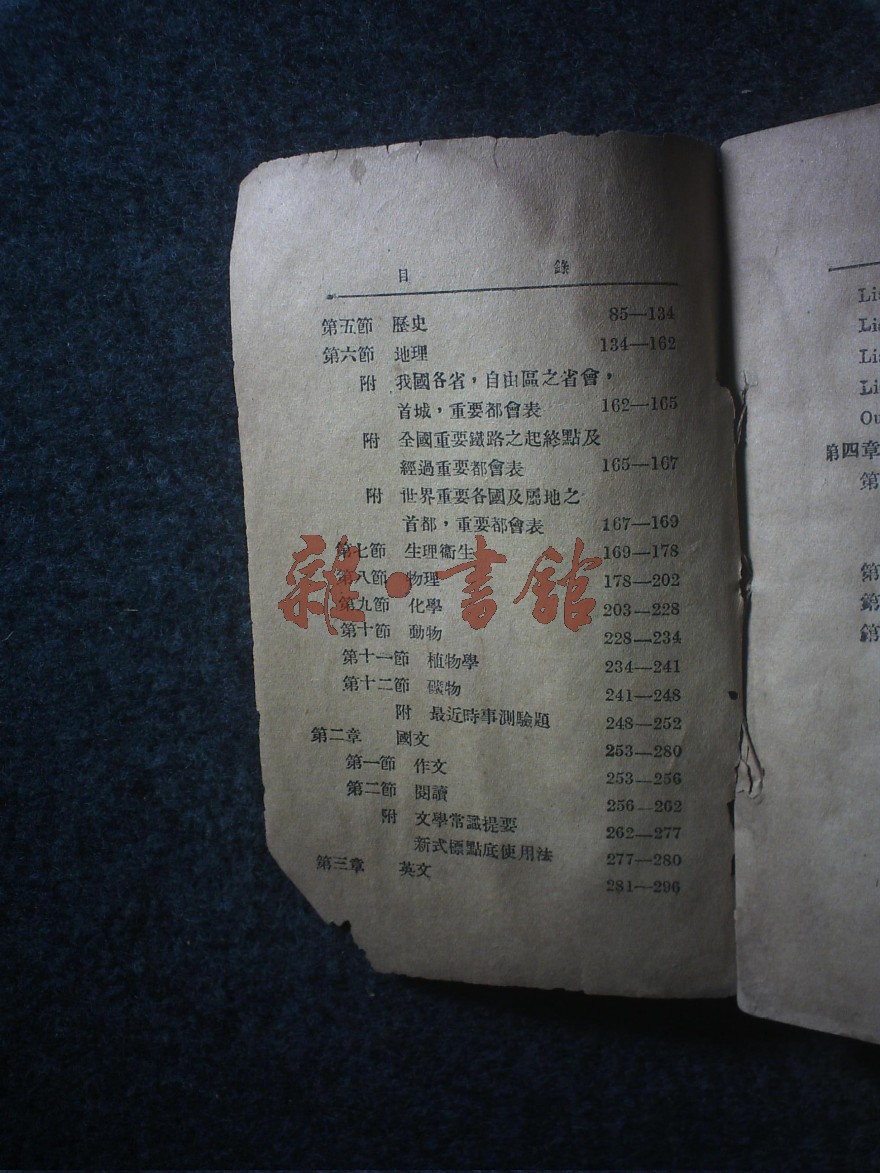 目 錄
第五節 歷史 85—134
第六節 地理 134—162
附 我國各省，自由區之省會，
首城，重要都會表 162—165
附 全國重要鐵路之起終點及
經過重要都會表 165—167
附 世界重要各國及屬地之
首都，重要都會表 167—169
第七節 生理衞生 169—178
第八節 物理 178—202
第九節 化學 203—228
第十節 動物 228—234
第十一節 植物學 234—241
第十二節 礦物 241—248
附 最近時事測驗題 248—252
第二章 國文 253—280
第一節 作文 253—256
第二節 閱讀 256—262
附 文學常識提要 262—277
新式標點底使用法 277—280
第三章 英文 281—296
雜·書館
Lis
Lis
Lis
Li
Ou
第四章
第
第
第
第